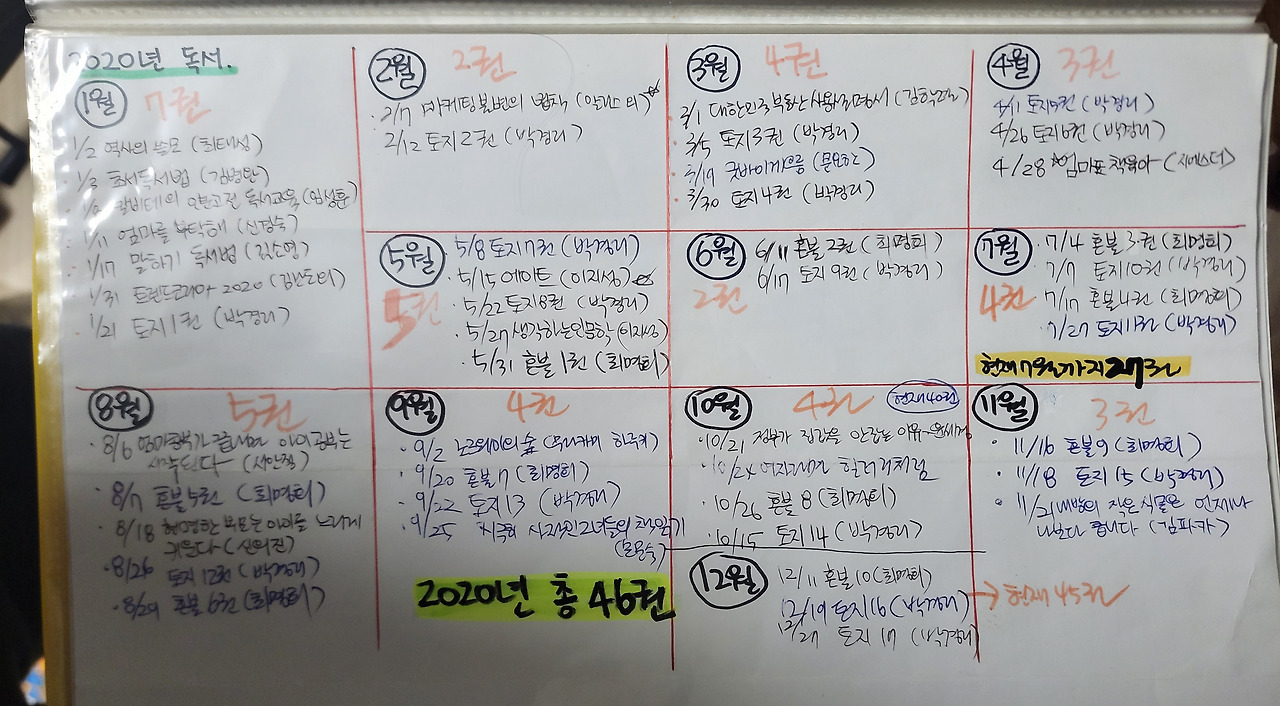 2020년 독서.
1월 7권
1/2 역사의 쓸모 (최태성)
1/3 초서독서법 (김병완)
1/8 칼비테의 인문고전 독서교육 (임성훈)
1/11 엄마를 부탁해 (신경숙)
1/17 말하기 독서법 (김소영)
1/31 트렌드코리아 2020 (김난도外)
1/21 토지 1권 (박경리)
2월 2권
2/7 마케팅 불변의 법칙
2/12 토지 2권 (박경리)
3월 4권
3/1 대한민국 부동산 사용설명서 (김학렬)
3/5 토지 3권 (박경리)
3/19 굿바이 게으름 (문요한)
3/30 토지 4권 (박경리)
4월 3권
4/11 토지 5권 (박경리)
4/26 토지 6권 (박경리)
4/28 엄마표 책육아 (지에스더)
5월 5권
5/8 토지 7권 (박경리)
5/15 에이트 (이지성)
5/22 토지 8권 (박경리)
5/27 생각하는 인문학 (이지성)
5/31 혼불 1권 (최명희)
6월 2권
6/11 혼불 2권 (최명희)
6/17 토지 9권 (박경리)
7월 4권
7/4 혼불 3권 (최명희)
7/7 토지 10권 (박경리)
7/17 혼불 4권 (최명희)
7/27 토지 11권 (박경리)
현재 7월까지 27권
8월 5권
8/6 엄마공부가 끝나면 아이공부는
시작된다 (서안정)
8/7 혼불 5권 (최명희)
8/18 현명한 부모는 아이를 느리게
키운다 (신의진)
8/26 토지 12권 (박경리)
8/29 혼불 6권 (최명희)
9월 4권
9/2 노르웨이의 숲 (무라카미 하루키)
9/20 혼불 7 (최명희)
9/22 토지 13 (박경리)
9/25 지극히 사적인 그녀들의 책읽기
2020년 총 46권
10월 4권 현재 40권
10/21 정부가 집값을 안 잡는 이유
10/24
10/26 혼불 8 (최명희)
10/15 토지 14 (박경리)
11월 3권
11/16 혼불 9 (최명희)
11/18 토지 15 (박경리)
11/21 내 방의 작은 식물은 언제나
나보다 큽니다 (김파카)
12월
12/11 혼불 10 (최명희)
12/19 토지 16 (박경리) → 현재 45권
12/27 토지 17 (박경리)